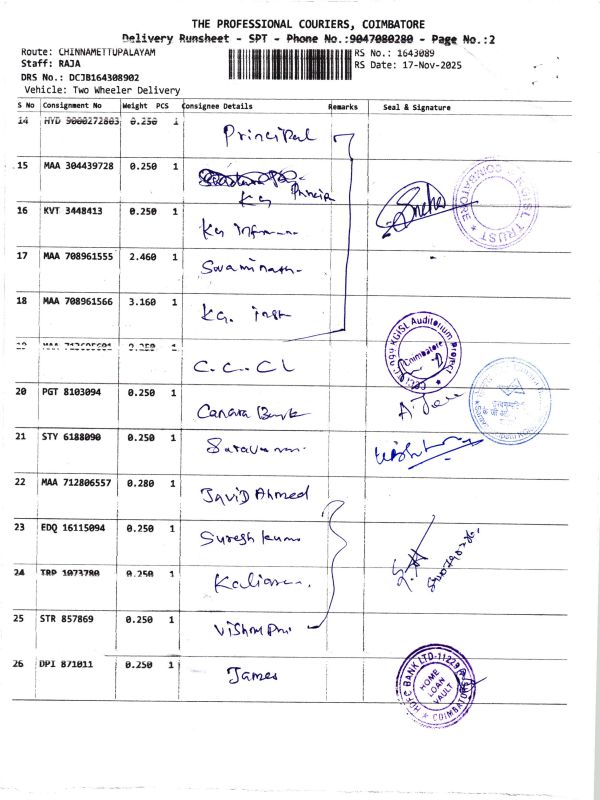 THE PROFESSIONAL COURIERS, COIMBATORE
Delivery Runsheet - SPT - Phone No.:9047080280 - Page No.:2
Route: CHINNAMETTUPALAYAM RS No.: 1643089
Staff: RAJA RS Date: 17-Nov-2025
DRS No.: DCJB164308902
Vehicle: Two Wheeler Delivery
S No Consignment No Weight PCS Consignee Details Remarks Seal & Signature
14 HYD 9000272803 0.250 1 Principal
15 MAA 304439728 0.250 1
KG Princip
16 KVT 3448413 0.250 1 KG
Sneha
KGISL TRUST COIMBATORE
17 MAA 708961555 2.460 1 Swaminath
18 MAA 708961566 3.160 1 KG. inst
19 MAA 0.250 1 C.C.CL
KGISL Auditorium Project
Coimbatore
20 PGT 8103094 0.250 1 Canara Bank
21 STY 6188090 0.250 1 Saravanan
22 MAA 712806557 0.280 1 Javid Ahmed
23 EDQ 16115094 0.250 1 Suresh kumar
24 TRP 1073780 0.250 1
25 STR 857869 0.250 1
26 DPI 871011 0.250 1 James
HDFC BANK LTD
HOME LOAN VAULT
COIMBATORE